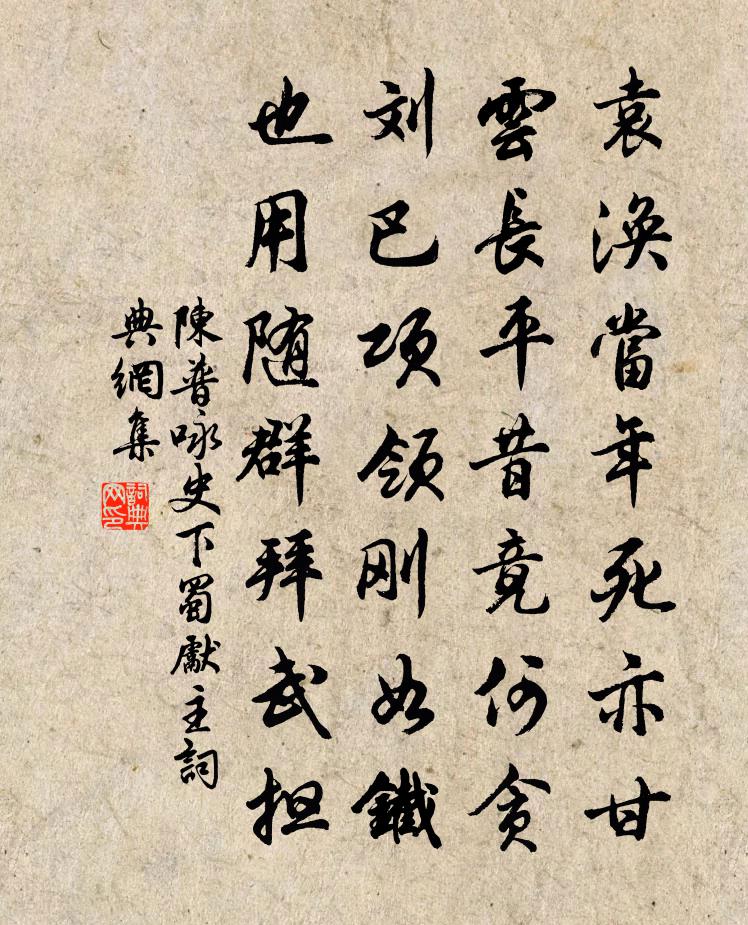 袁渙當年死亦甘
雲長平昔竟何貪
刘巴项领刚如鐵
也用随群拜武担
陳普咏史下蜀獻主詞
典網集
詞典
网印